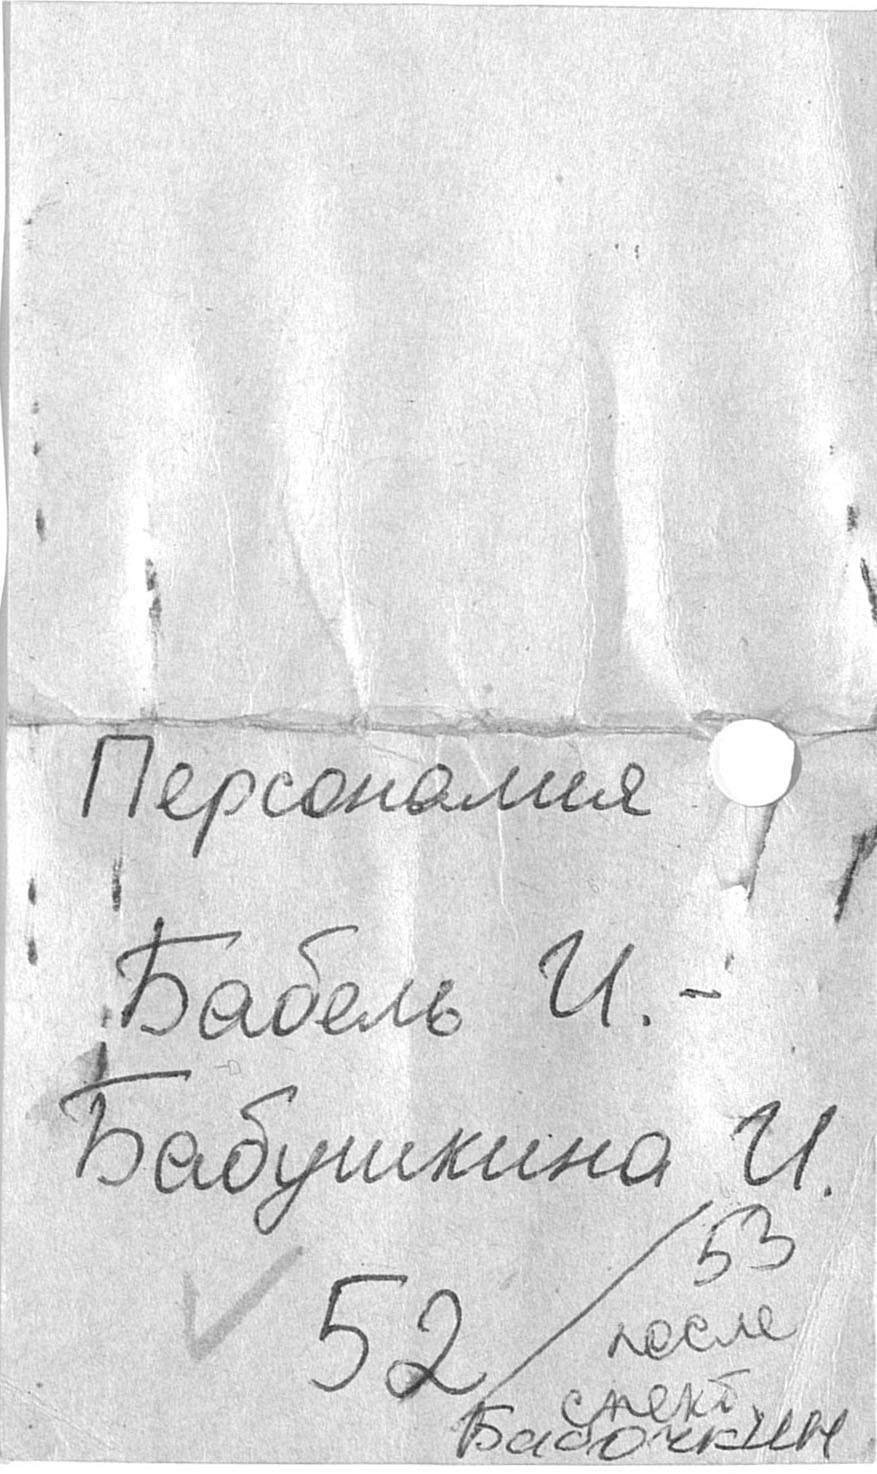 Персоналия
Бабель И. -
Бабушкина И.
52 / 53
после
Бабочкин